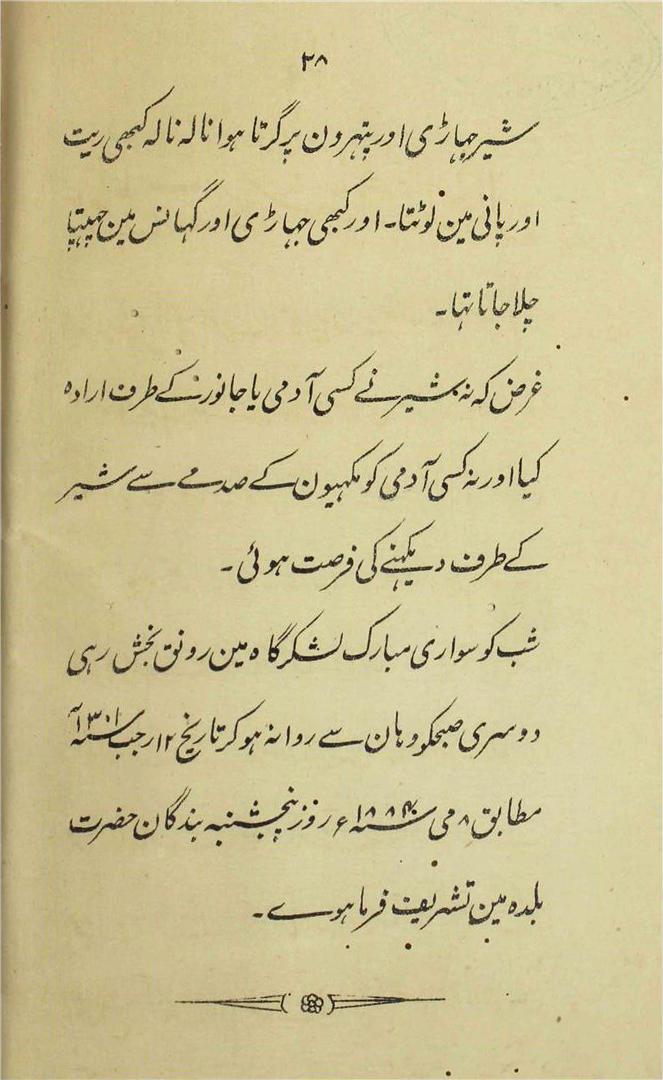 ۲۸
شیر جہاڑی اور پتہرون پر گرتا ہوا نالہ نالہ کبھی ریت
اور پانی مین لوٹتا۔ اور کبھی جہاڑی اور گہانس مین چہپتا
چلا جاتا تہا۔
غرض کہ نہ شیر نے کسی آدمی یا جانور کے طرف ارادہ
کیا اور نہ کسی آدمی کو مکہیون کے صدمے سے شیر
کے طرف دیکہنے کی فرصت ہوئی۔
شب کو سواری مبارک لشکر گاہ مین رونق بخش رہی
دوسری صبحکو وہان سے روانہ ہو کر تاریخ ۱۲ رجب سنہ ۱۳۰۱
مطابق ۸ می سنہ ۱۸۸۴ء روز پنجشنبہ بندگان حضرت
بلدہ مین تشریف فرما ہوے۔